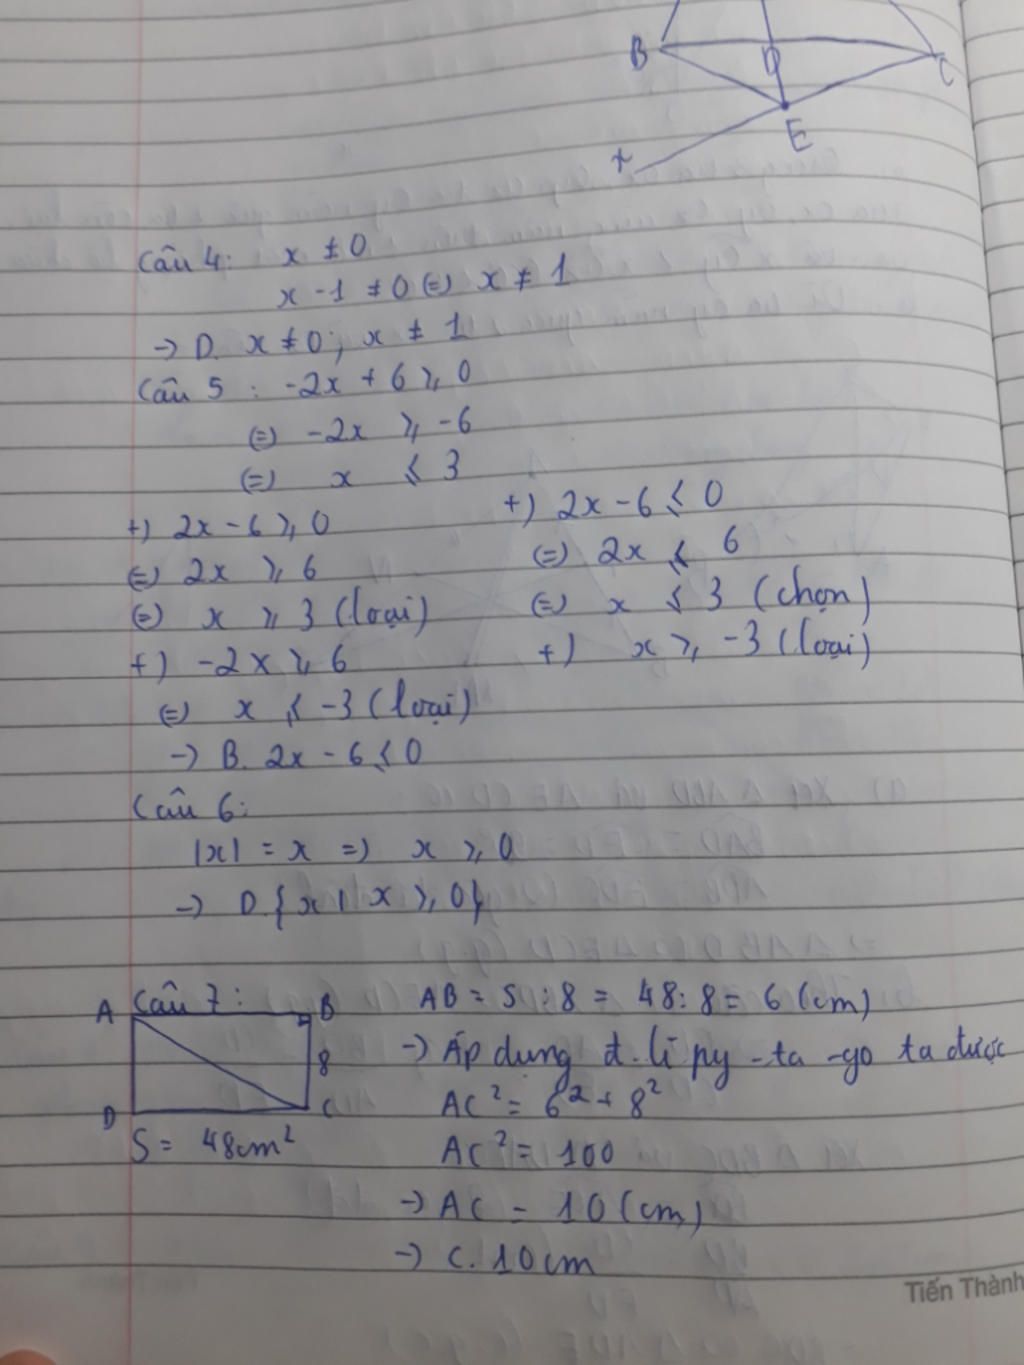 B
D
C
E
x
Câu 4: x ≠ 0
x - 1 ≠ 0 (=) x ≠ 1
-> D. x ≠ 0; x ≠ 1
Câu 5 : -2x + 6 ≥ 0
(=) -2x ≥ -6
(=) x ≤ 3
+) 2x - 6 ≥ 0
(=) 2x ≥ 6
(=) x ≥ 3 (loại)
+) -2x ≥ 6
(=) x ≤ -3 (loại)
+) 2x - 6 ≤ 0
(=) 2x ≤ 6
(=) x ≤ 3 (chọn)
+) x ≥ -3 (loại)
-> B. 2x - 6 ≤ 0
Câu 6:
|x| = x => x ≥ 0
-> D. {x | x ≥ 0}
Câu 7:
A
B
8
D
C
S = 48cm²
AB = S : 8 = 48 : 8 = 6 (cm)
-> Áp dụng đ. lí py-ta-go ta được
AC² = 6² + 8²
AC² = 100
-> AC = 10 (cm)
-> C. 10cm
Tiến Thành